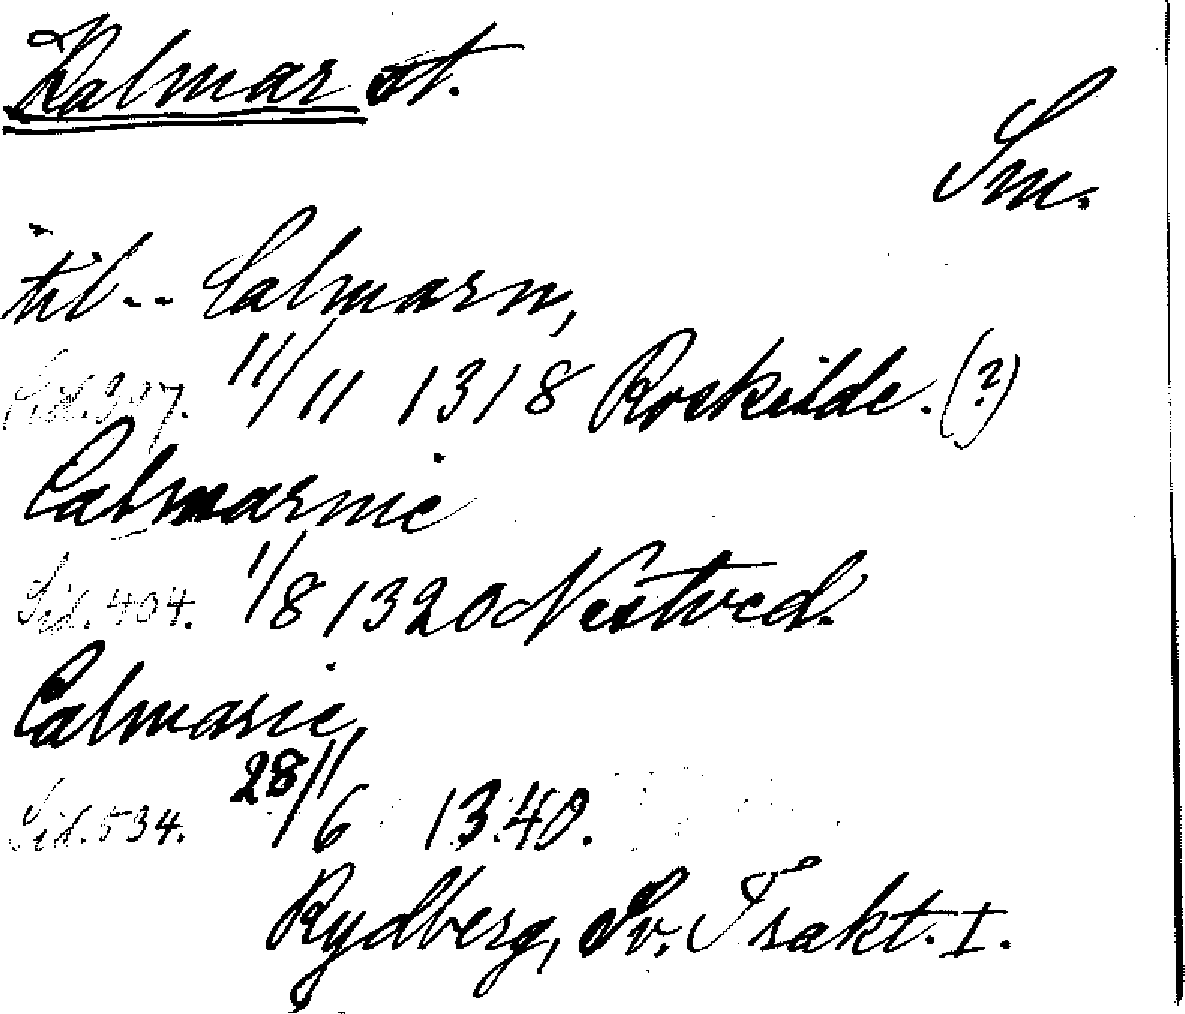 Kalmar st.
Sm.
til -- Calmarn,
Sid. 397. 11/11 1318 Roskilde. (?)
Calmarnie
Sid. 404. 1/8 1320 Nestved.
Calmarie,
Sid. 534. 28/6 1340.
Rydberg, Sv. Trakt. I.